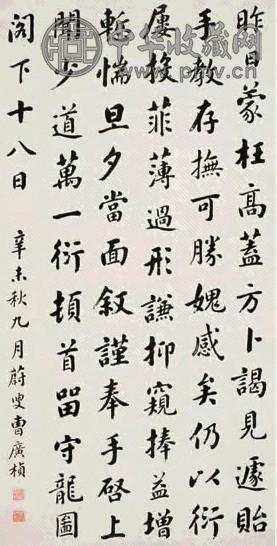 昨日蒙枉高蓋方卜謁見遽貽
手教存撫可勝媿感矣仍以衍
屢挨菲薄過形謙抑窺捧益增
慚惴旦夕當面敘謹奉手啓上
聞少道萬一衍頓首留守龍圖
閣下十八日
辛未秋九月蔚叟曹廣楨
中华收藏网